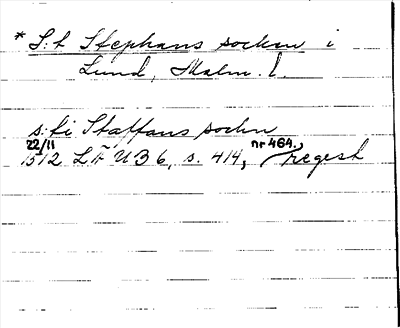 * S:t Stephans socken i
Lund, Malm. l.
s:ti Staffans sockn
22/11 1512 LÄUB 6, s. 414, nr 464., regest